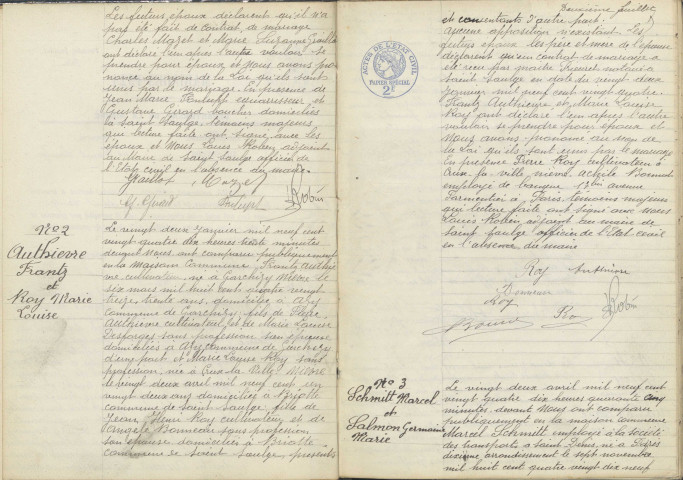 Les futurs époux déclarent qu'il n'a
pas été fait de contrat de mariage
Charles Mazet et Marie Suzanne Graillot
ont déclaré l'un après l'autre vouloir se
prendre pour époux et nous avons pro-
noncé au nom de la Loi qu'ils sont
unis par le mariage. En présence de
Jean Marie équarrisseur et
Gustave Girard boucher domiciliés
à Saint Saulge témoins majeurs
qui lecture faite ont signé avec les
époux et Nous Louis Robin adjoint
au Maire de Saint Saulge officier de
l'Etat civil en l'absence du maire
Graillot Mazet
Robin
No 2
Authierre
Frantz
et
Roy Marie
Louise
Le vingt deux janvier mil neuf cent
vingt quatre dix heures trente minutes
devant nous ont comparu publiquement
en la maison commune Frantz Authier
re cultivateur né à Garchizy Nièvre le
six mars mil huit cent quatre vingt
treize trente ans, domicilié à Azy
commune de Garchizy fils de
Authierre cultivateur et de Marie Louise
Desforges sans profession son épouse
domiciliés à Azy commune de Garchizy
d'une part et Marie Louise Roy sans
profession née à Crux la Ville Nièvre
le vingt deux avril mil neuf cent un
vingt deux ans domiciliée à Briotte
commune de Saint Saulge fille de
Jean Henri Roy cultivateur et de
Angèle Bonneau sans profession
son épouse domiciliés à Briotte
commune de Saint Saulge présents
Deuxième feuillet
et consentants d'autre part.
Aucune opposition n'existant. Les
futurs époux les père et mère de l'épouse
déclarent qu'un contrat de mariage a
été reçu par maître notaire à
Saint Saulge en date du vingt deux
janvier mil neuf cent vingt quatre.
Frantz Authierre et Marie Louise
Roy ont déclaré l'un après l'autre
vouloir se prendre pour époux et
Nous avons prononcé au nom de
la Loi qu'ils sont unis par le mariage
En présence Pierre Roy cultivateur à
Crux la ville Achille Bonneau
employé de banque 13bis avenue
Parmentier à Paris témoins majeurs
qui lecture faite ont signé avec Nous
Louis Robin adjoint au maire de
Saint Saulge officier de l'Etat civil
en l'absence du maire
ACTES DE L'ÉTAT CIVIL
PAPIER SPÉCIAL
2f
Roy Authierre
Bonneau
Roy
Roy Robin
No 3
Schmitt Marcel
et
Salmon Germaine
Marie
Le vingt deux avril mil neuf cent
vingt quatre dix heures quarante cinq
minutes devant Nous ont comparu
publiquement en la maison commune
Marcel Schmitt employé à la Société
des transports à Saint Denis, né à Paris
dixième arrondissement le sept novembre
mil huit cent quatre vingt dix neuf